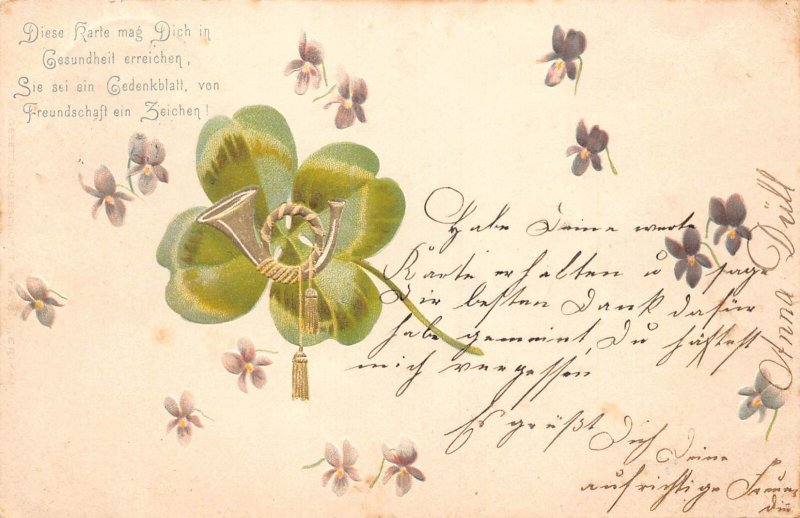 Diese Karte mag Dich in
Gesundheit erreichen,
Sie sei ein Gedenkblatt, von
Freundschaft ein Zeichen!
Habe Deine werte
Karte erhalten u sage
Dir besten Dank dafür
habe gemeint, Du häftest
mich vergessen
Es grüßt Dich Deine
aufrichtige Freun
din
Anna Düll